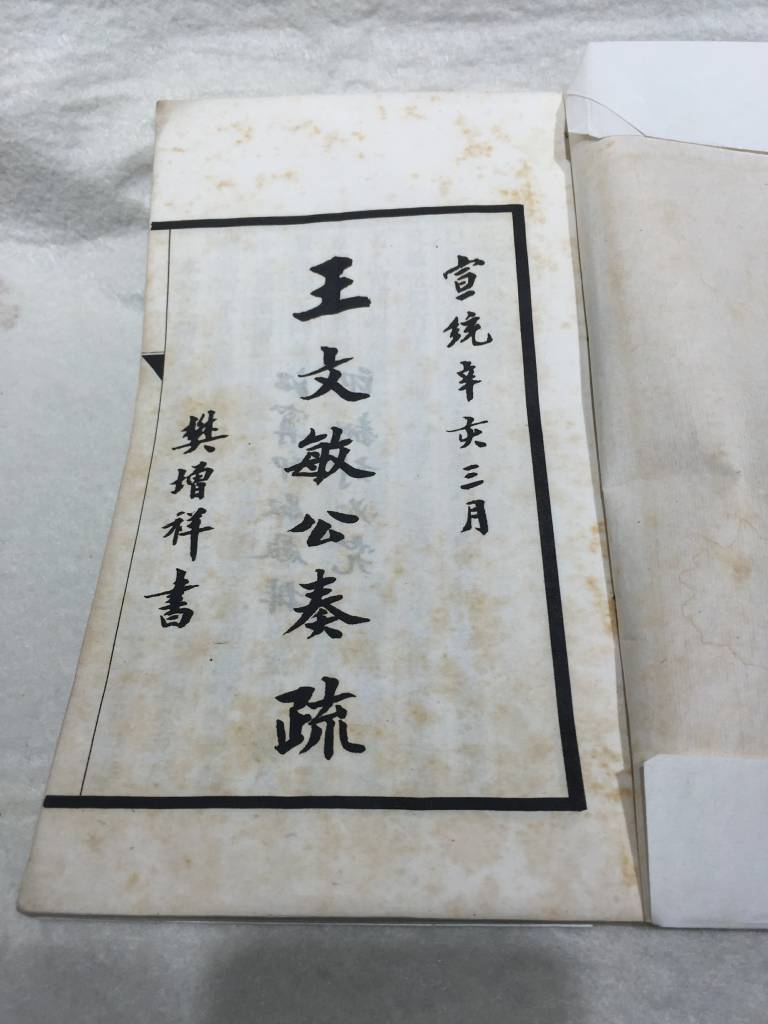 宣統辛亥三月
王文敏公奏疏
樊增祥書